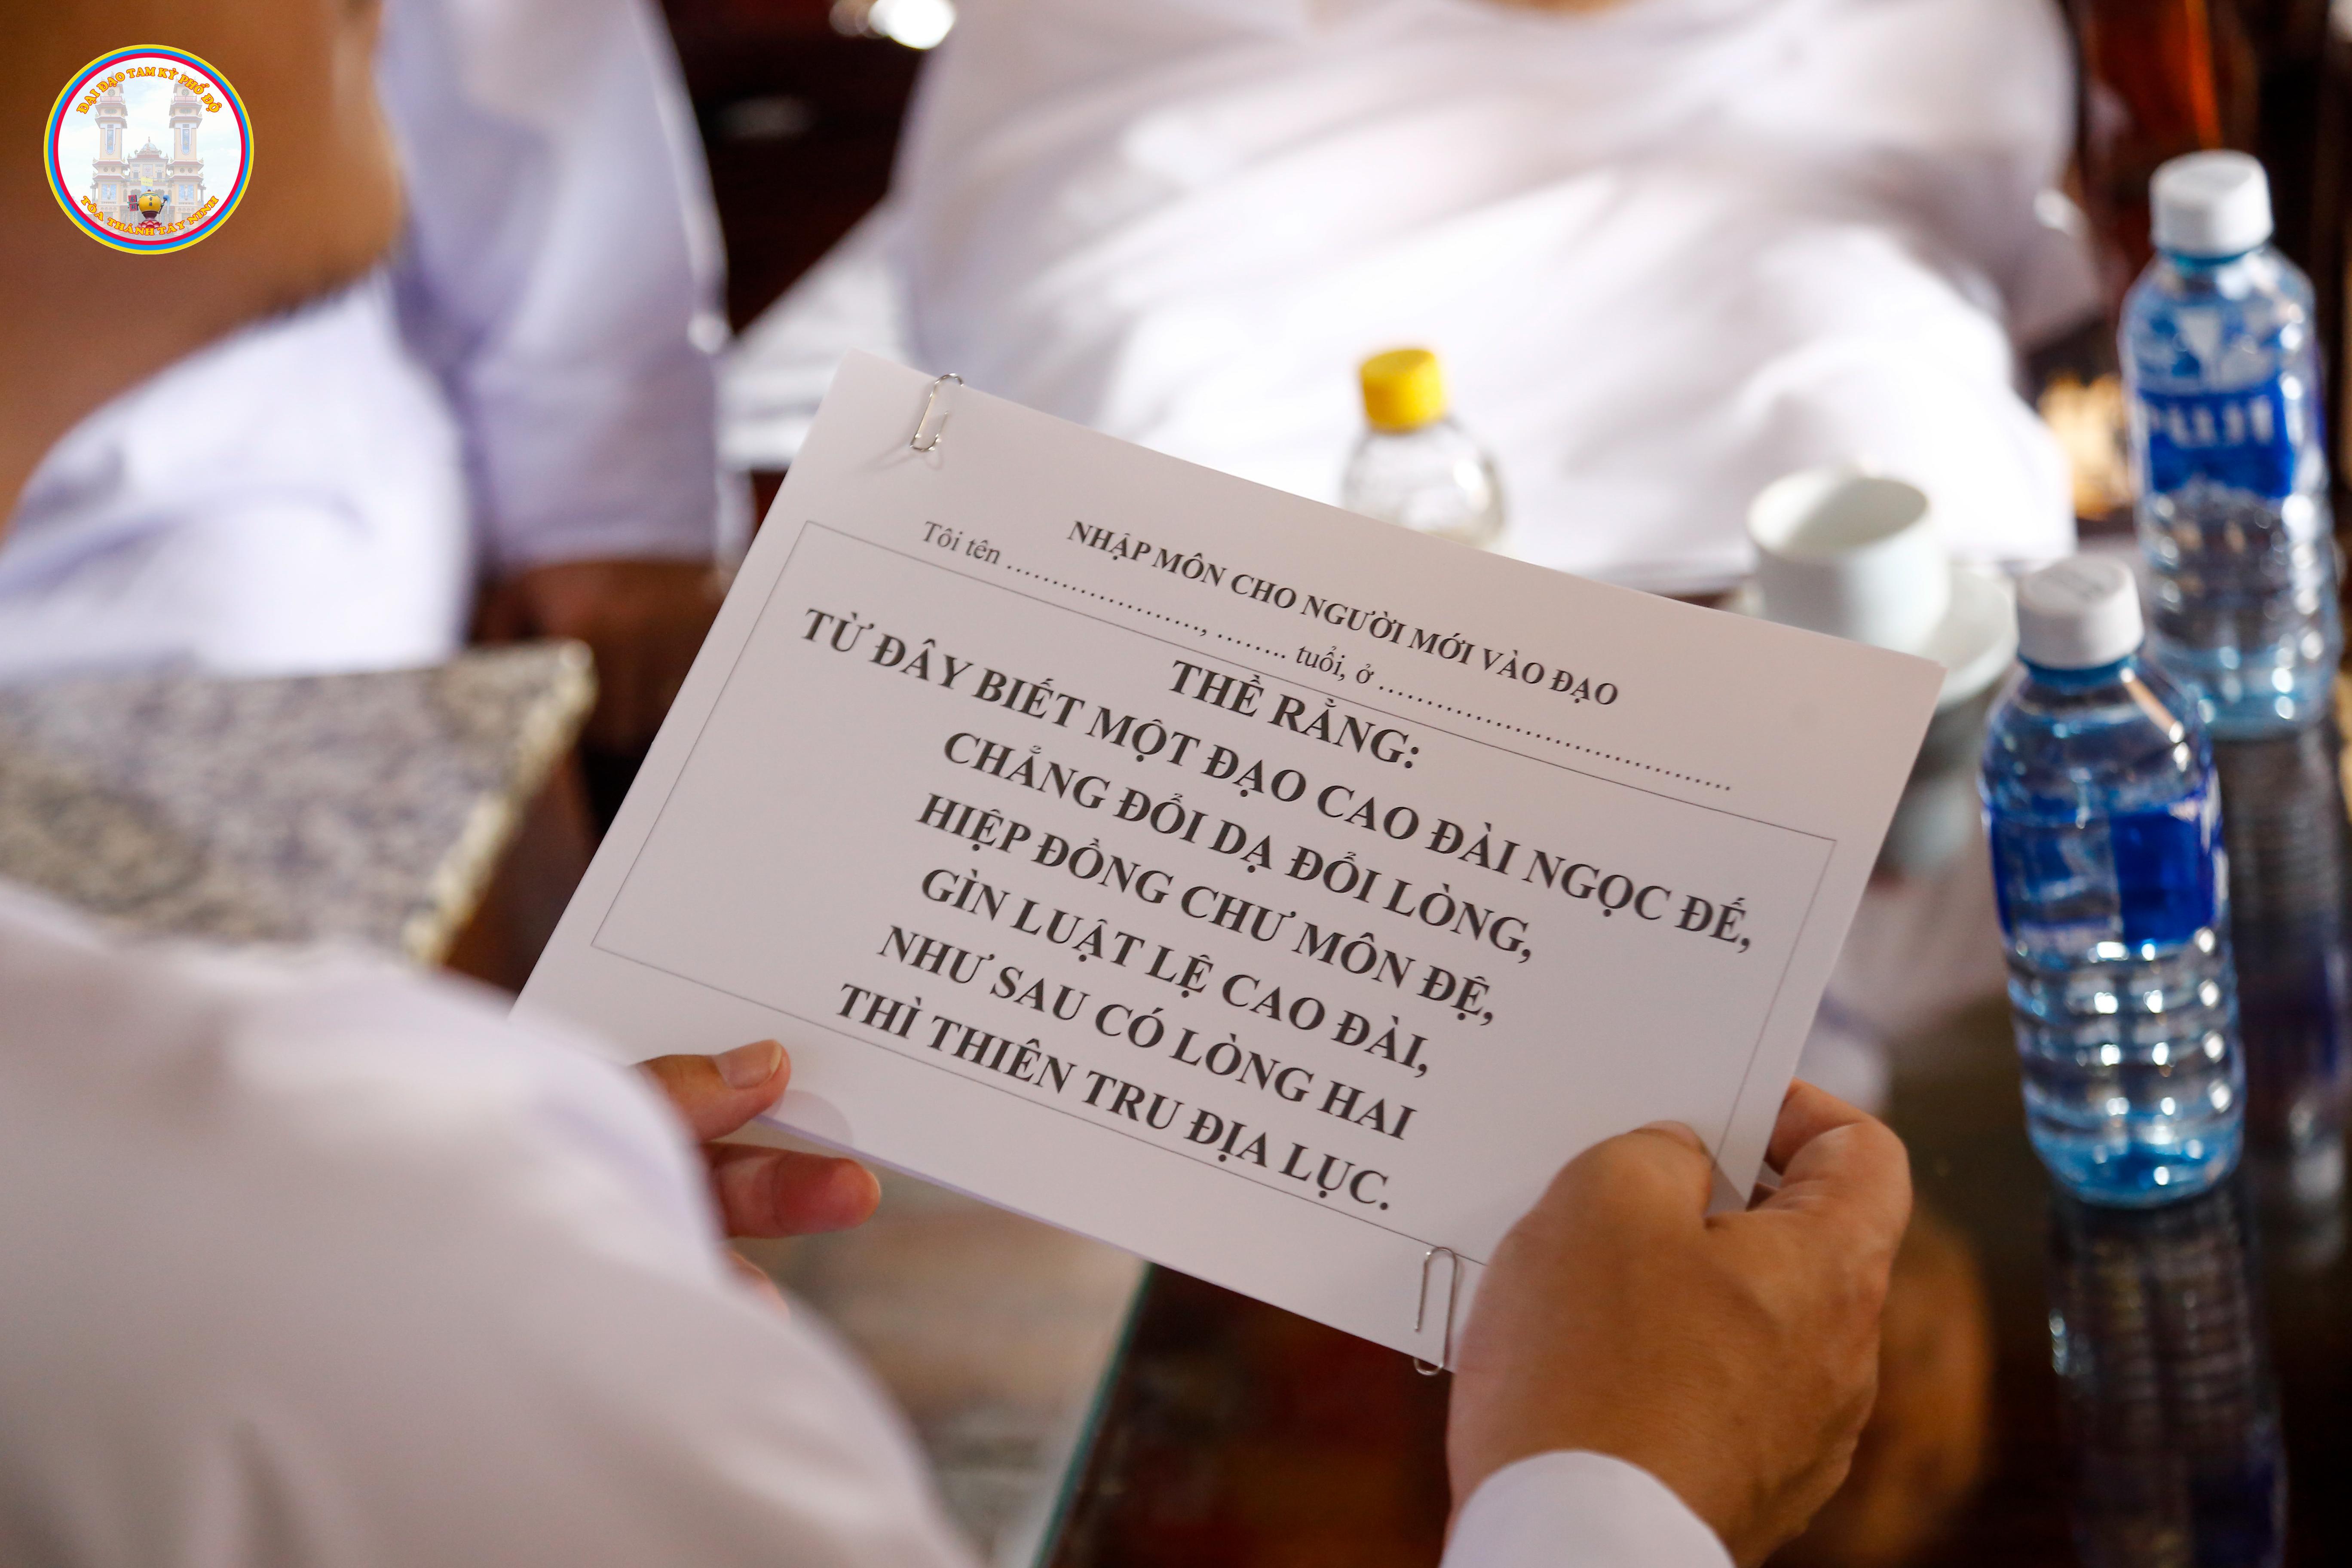 ĐẠI ĐẠO TAM KỲ PHỔ ĐỘ
TÒA THÁNH TÂY NINH
NHẬP MÔN CHO NGƯỜI MỚI VÀO ĐẠO
Tôi tên ........................., ........ tuổi, ở ..............................................
THỀ RẰNG:
TỪ ĐÂY BIẾT MỘT ĐẠO CAO ĐÀI NGỌC ĐẾ,
CHẲNG ĐỔI DẠ ĐỔI LÒNG,
HIỆP ĐỒNG CHƯ MÔN ĐỆ,
GÌN LUẬT LỆ CAO ĐÀI,
NHƯ SAU CÓ LÒNG HAI
THÌ THIÊN TRU ĐỊA LỤC.